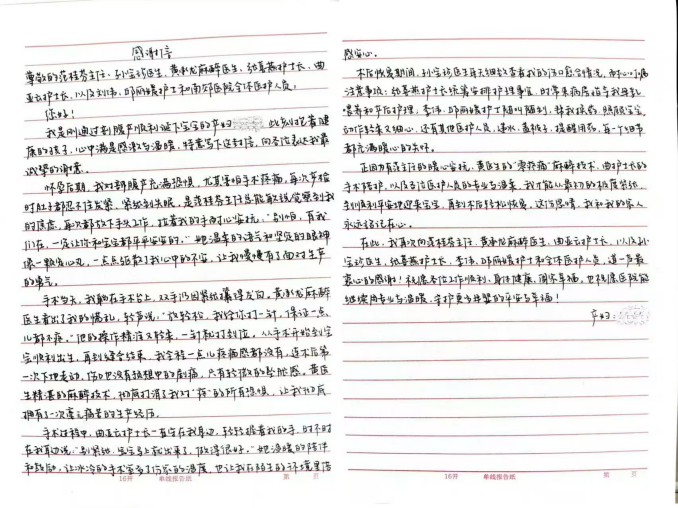 感谢信
尊敬的范桂芬主任、孙宝珍医生、黄新龙麻醉医生、张喜燕护士长、曲
亚云护士长，以及刘伟、邱丽媛护士和南郊医院全体医护人员：
您好！
我是刚通过剖腹产顺利诞下宝宝的产妇 此刻抱着健
康的孩子，心中满是感激与温暖，特意写下这封信，向各位表达我最
诚挚的谢意。
怀孕后期，我对剖腹产充满恐惧，尤其害怕手术疼痛，每次产检
时肚子都忍不住发紧，紧张到失眠，是范桂芬主任总能敏锐觉察到我
的焦虑，每次都放下手头工作，拉着我的手耐心安抚：“别怕，有我
们在，一定让你和宝宝都平平安安的。”她温柔的语气和坚定的眼神
像一颗定心丸，一点点驱散了我心中的不安，让我慢慢有了面对生产
的勇气。
手术当天，我躺在手术台上，双手仍因紧张攥得发白，黄新龙麻醉
医生看出了我的慌乱，轻声说：“放轻松，我给你打一针，保证一点
儿都不疼。”他的操作精准又轻柔，一针就打到位，从手术开始到宝
宝顺利出生，再到缝合结束，我全程一点儿疼痛感都没有，连术后第
一次下地走动，伤口也没有预想中的剧痛，只有轻微的坠胀感。黄医
生精湛的麻醉技术，彻底打消了我对“疼”的所有恐惧，让我
拥有了一次毫无痛苦的生产经历。
手术过程中，曲亚云护士长一直守在我身边，轻轻握着我的手，时不时
在我耳边说：“别紧张，宝宝马上就出来了，做得很好。”她温暖的陪伴
和鼓励，让冰冷的手术室多了份家的温度，也让我在陌生的环境里倍
16开 单线报告纸 第 页
感安心。
术后恢复期间，孙宝珍医生每天细致查看我的伤口愈合情况，耐心叮嘱
注意事项；张喜燕护士长统筹安排护理事宜，时常来病房指导我母乳
喂养和产后护理，李伟、邱丽媛护士随叫随到，替我换药、照顾宝宝，
动作轻柔又细心，还有其他医护人员，递水、盖被子、提醒用药，每一个细节
都充满暖心的关怀。
正因为有范主任的暖心安抚，黄医生的“零疼痛”麻醉技术，曲护士长的
手术陪护，以及各位医护人员的专业与温柔，我才能从最初的极度紧张，
到顺利平安地迎来宝宝，再到术后轻松恢复，这份恩情，我和我的家人
永远铭记在心。
在此，我再次向范桂芬主任、黄新龙麻醉医生、曲亚云护士长，以及孙
宝珍医生、张喜燕护士长、李伟、邱丽媛护士和全体医护人员，道一声最
衷心的感谢！祝愿各位工作顺利，身体健康，阖家幸福，也祝愿医院能
继续用专业与温暖，守护更多母婴的平安与幸福！
产妇：
16开 单线报告纸 第 页